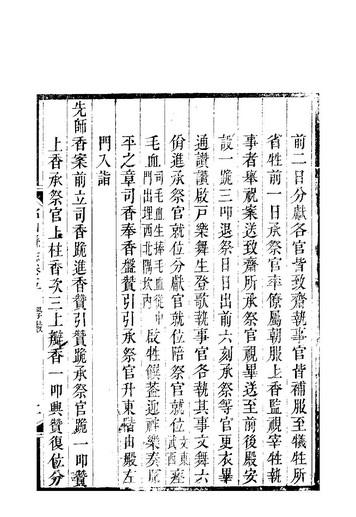 前二日分獻各官皆致齋執事官皆補服至犧牲所
省牲前一日承祭官率僚屬朝服上香監視宰牲執
事者舉祝案送致齋所承祭官視畢送至前後殿安
設一跪三叩退祭日日出前六刻承祭等官更衣畢
通讚讚啟戶樂舞生登歌執事官各執其事文舞六
佾進承祭官就位分獻官就位陪祭官就位文東武西瘞
毛血司毛血生捧毛血從中門出埋西北隅坎內啟牲饌蓋迎神樂奏
平之章司香奉香盤贊引引承祭官升東階由殿左
門入詣
先師香案前立司香跪進香贊引贊跪承祭官跪一叩贊
上香承祭官上柱香次三上瓣香一叩興贊復位分